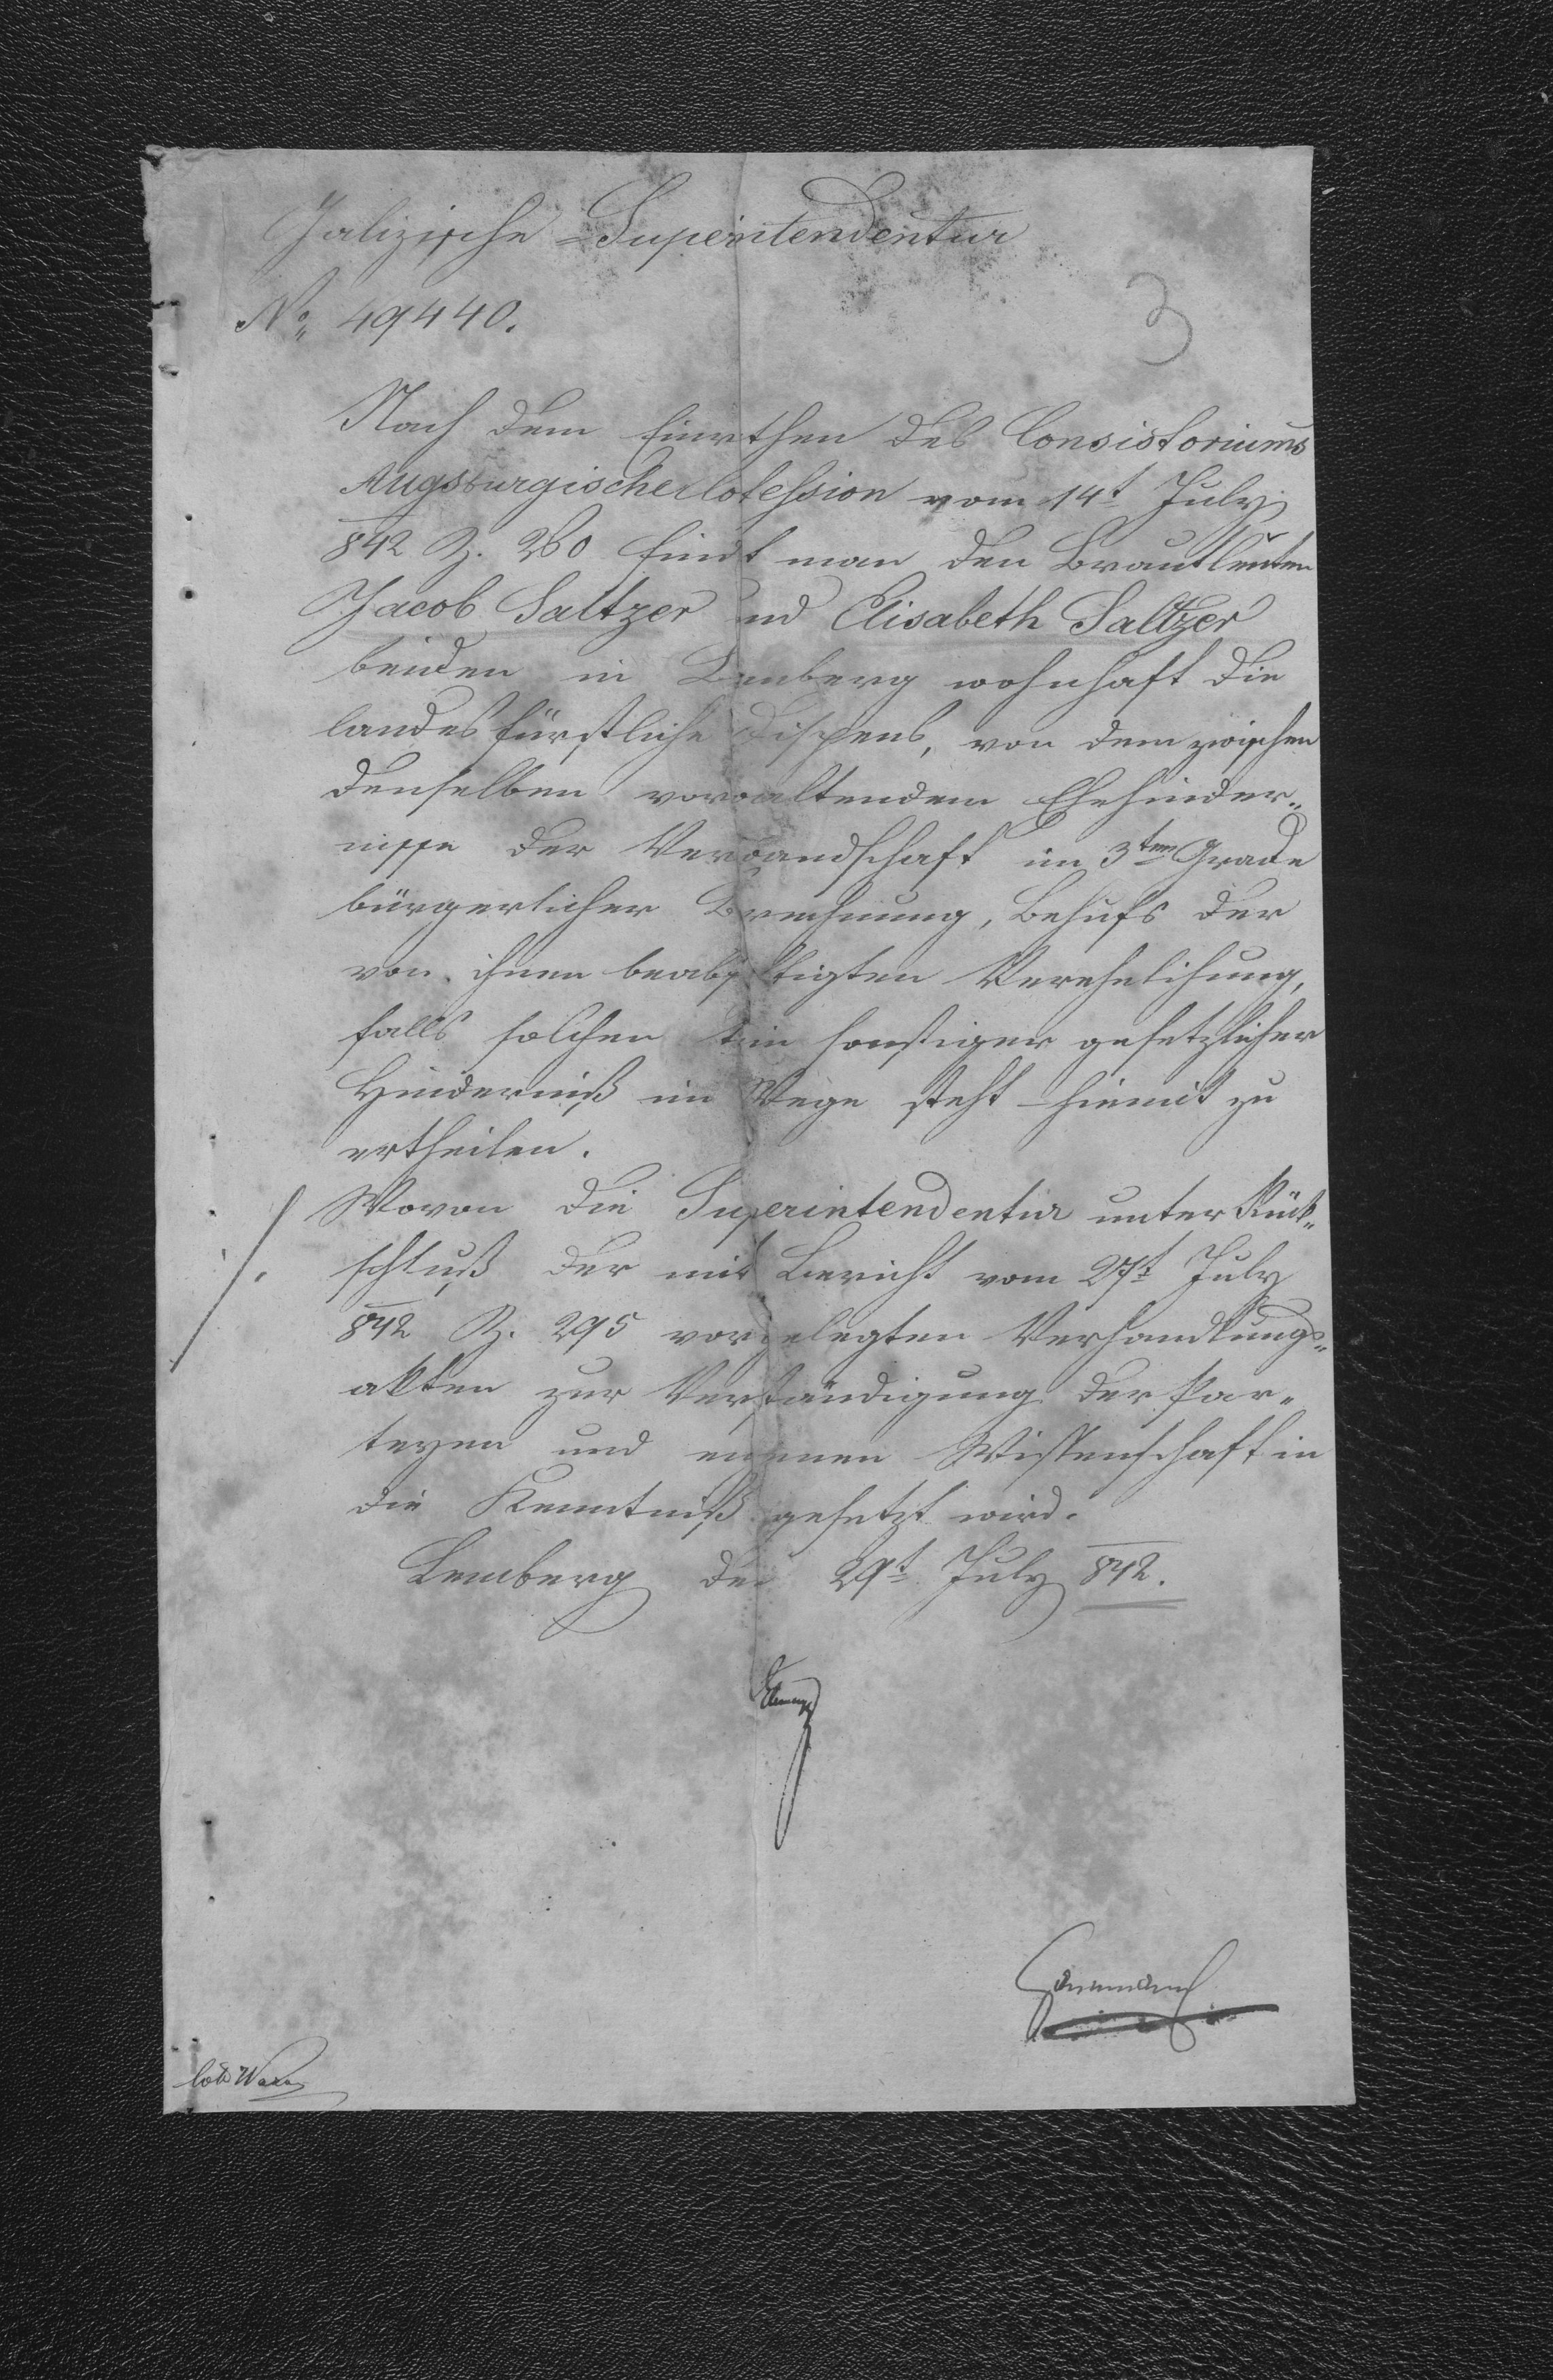 Galizische-Superintendentur
No 49440.
3
Nach dem Einrathen des Consistoriums
Augsburgischer Cofession vom 14t July
842 Z. 260 findt man den Brautleuten
Jacob Saltzer und Elisabeth Saltzer
beiden in Lemberg wohnhaft die
landesfürstliche Dispens, von dem zwischen
denselben vorwaltendem Ehehinder„
nisse der Verwandschaft im 3ten Grade
bürgerlicher Berechnung, Behufs der
von ihnen beabsichtigten Verehelichung,
falls solchen kein sonstiger gesetzlicher
Hinderniß im Wege steht hiemit zu
ertheilen.
Wovon die Superintendentur unter Rück„
schluß der mit Bericht vom 27t July
842 Z. 295 vorgelegten Verhandlungs„
akten zur Verständigung der Par„
teyen und eigenen Wissenschaft in
die Kenntniß gesetzt wird.
Lemberg den 29t July 842.